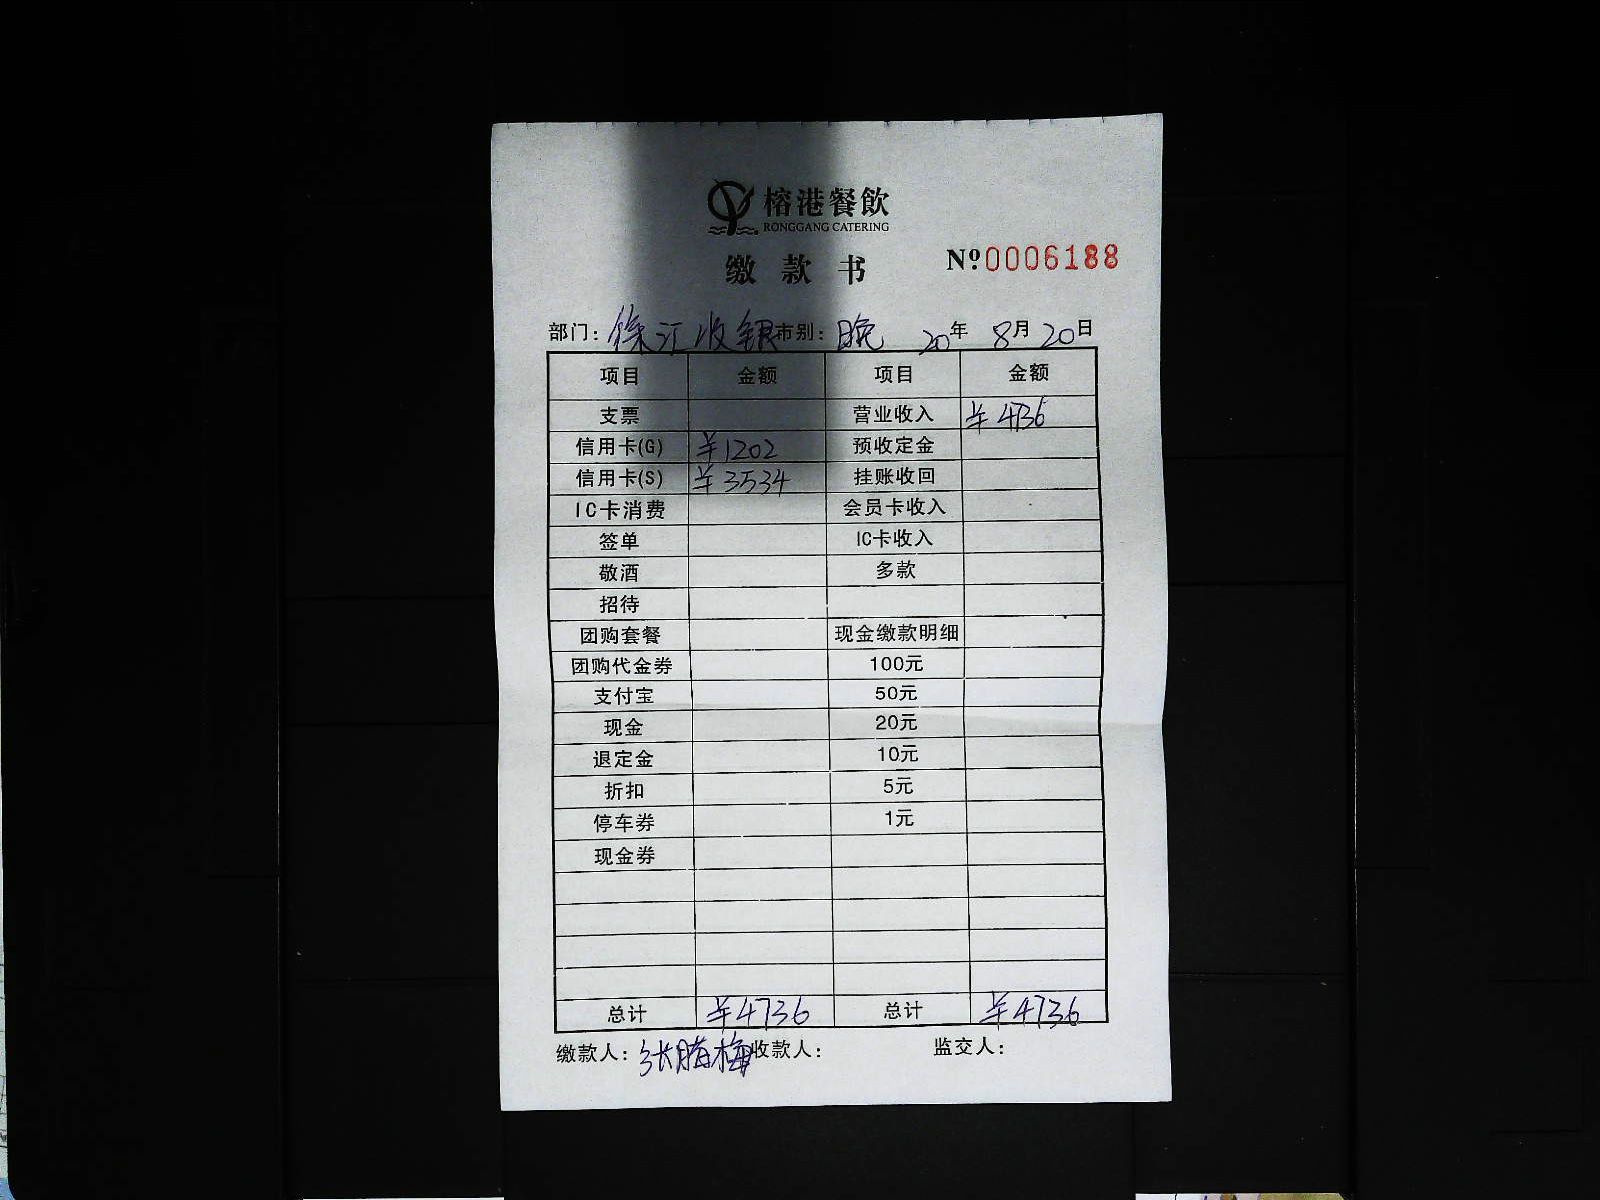 榕港餐飲
RONGGANG CATERING
缴款书 Nº 0006188
部门：徐汇收银 市别：晚 20年 8月20日
项目 金额 项目 金额
支票 营业收入 ¥4736
信用卡(G) ¥1202 预收定金
信用卡(S) ¥3534 挂账收回
IC卡消费 会员卡收入
签单 IC卡收入
敬酒 多款
招待
团购套餐 现金缴款明细
团购代金券 100元
支付宝 50元
现金 20元
退定金 10元
折扣 5元
停车券 1元
现金券
总计 ¥4736 总计 ¥4736
缴款人：张腊梅 收款人： 监交人：